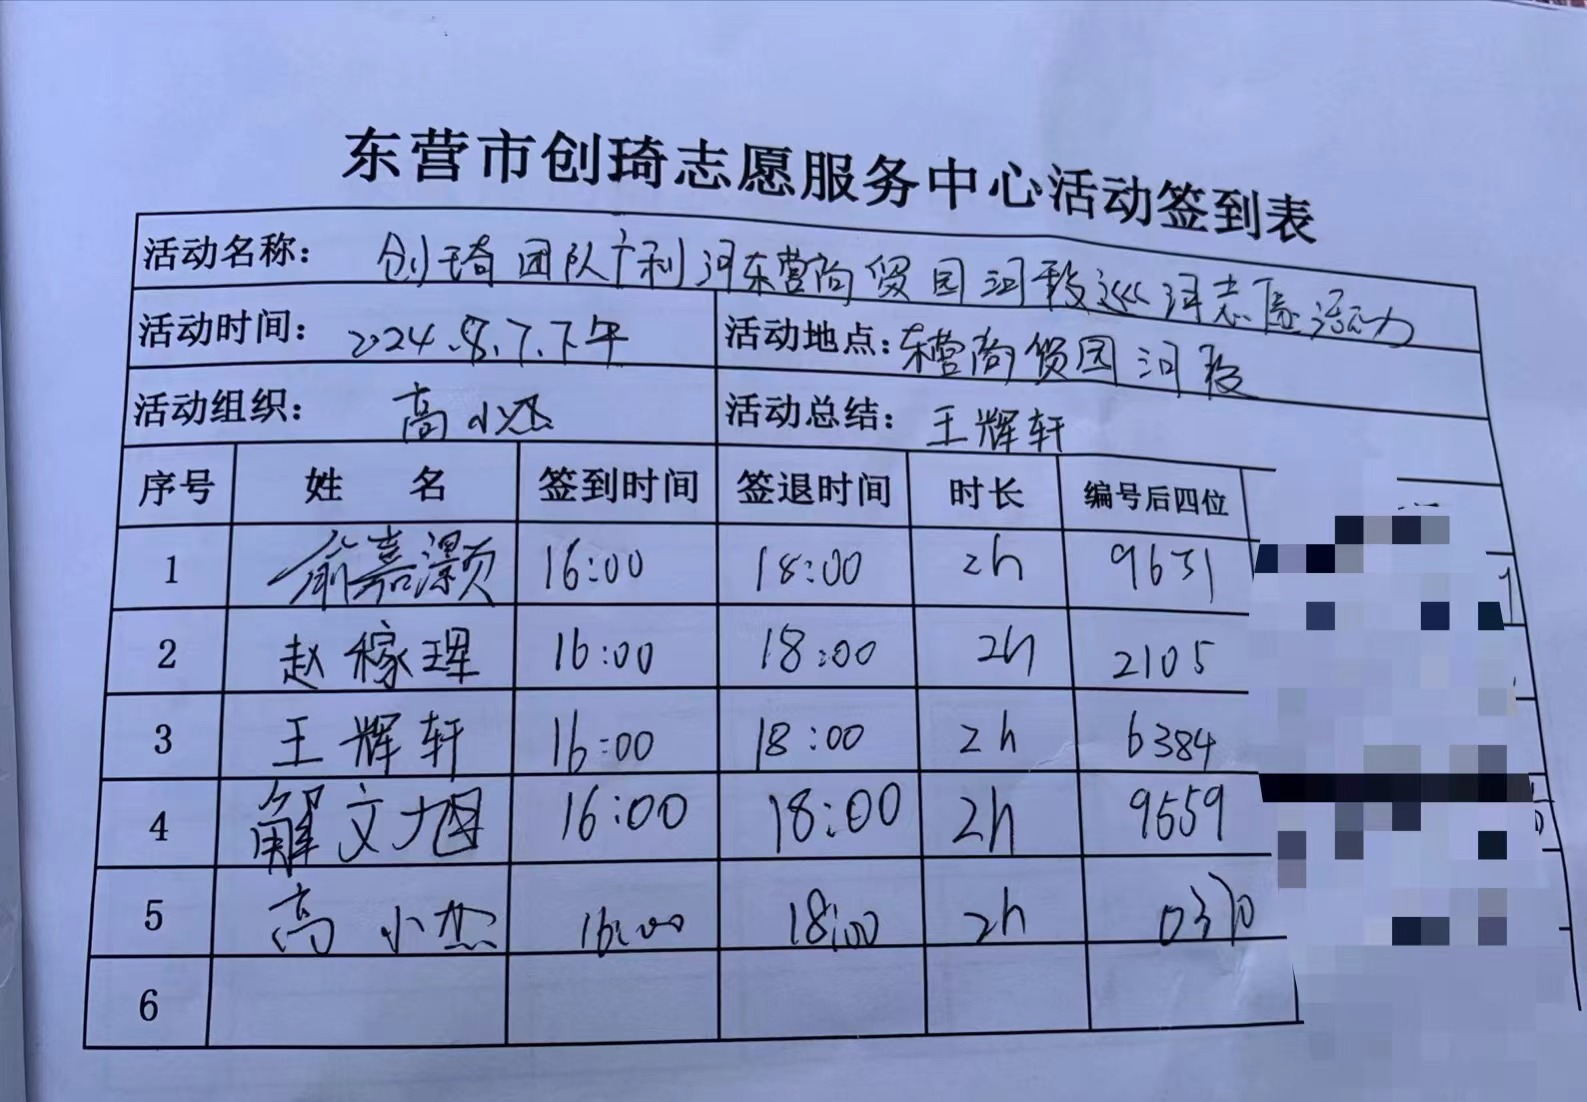 东营市创琦志愿服务中心活动签到表
活动名称: 创琦团队广利河东营商贸园河段巡河志愿活动
活动时间: 2024.8.7.下午 活动地点: 东营商贸园河段
活动组织: 高小杰 活动总结: 王辉轩
序号 姓名 签到时间 签退时间 时长 编号后四位
1 俞嘉灏 16:00 18:00 2h 9631
2 赵稼琿 16:00 18:00 2h 2105
3 王辉轩 16:00 18:00 2h 6384
4 解文旭 16:00 18:00 2h 9659
5 高小杰 16:00 18:00 2h 0370
6